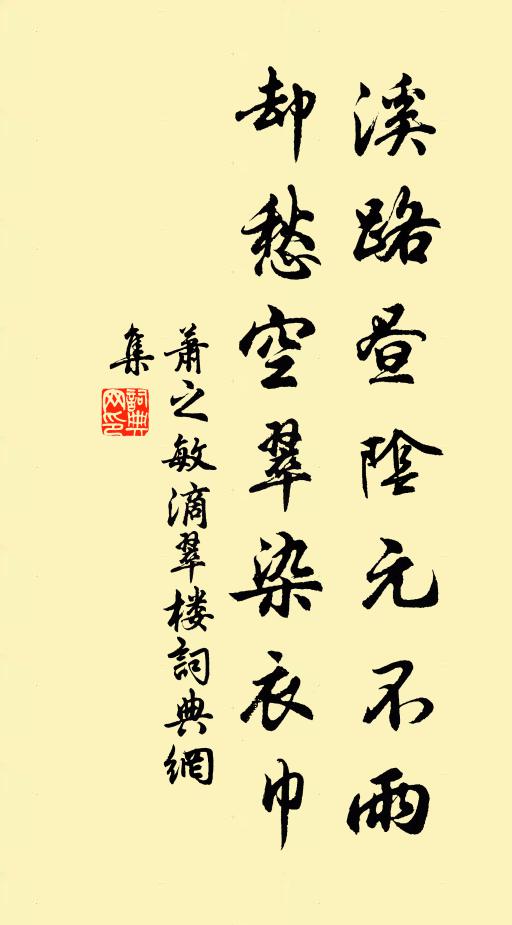 溪路昼陰元不雨
却愁空翠染衣巾
萧之敏滴翠楼詞典網
集
詞典网印